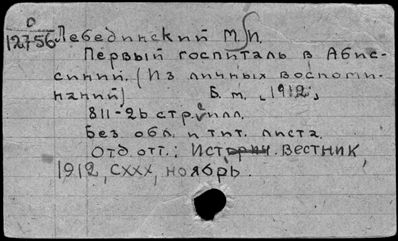 О
12756 Лебединский М. И.
Первый госпиталь в Абис-
синии. (Из личных воспоми-
наний) Б. м., 1912,
811-26 стр. с илл.
Без обл. и тит. листа.
Отд. отт.: Историч. вестник,
1912, CXXX, ноябрь.